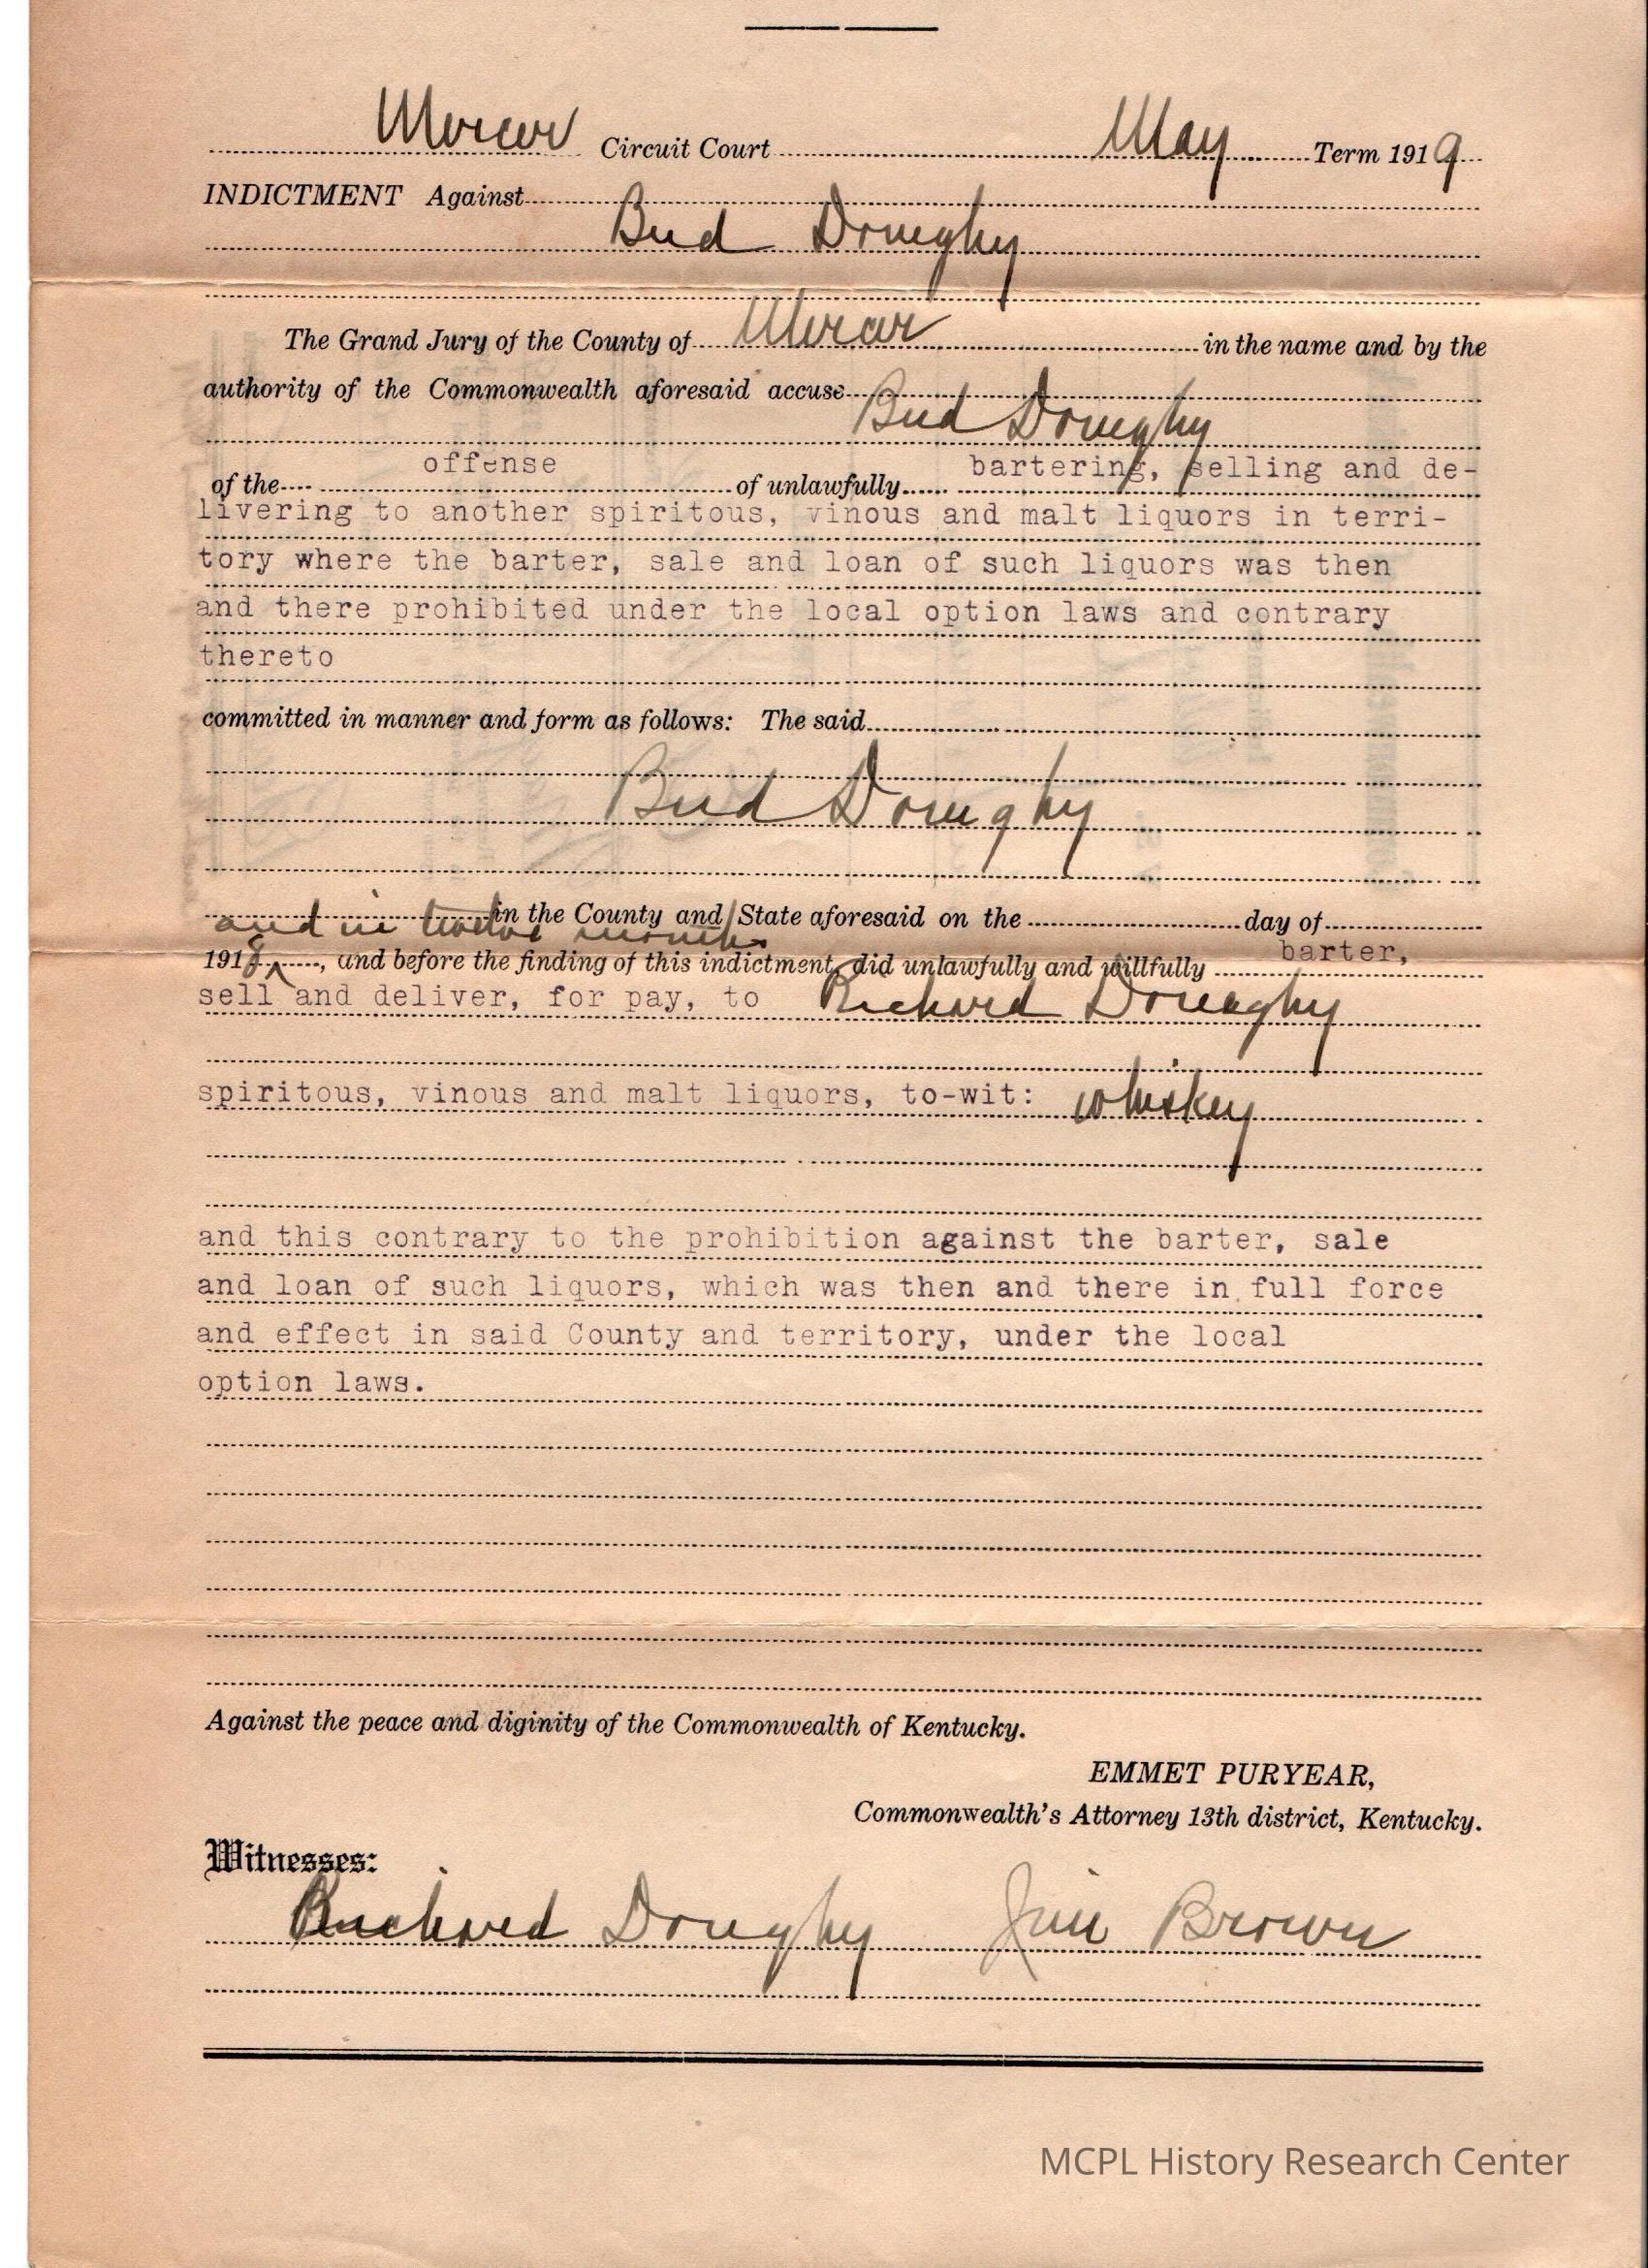 Mercer Circuit Court May Term 1919
INDICTMENT Against
Bud Doneghy
The Grand Jury of the County of Mercer in the name and by the
authority of the Commonwealth aforesaid accuse
Bud Doneghy
of the offense of unlawfully bartering, selling and de-
livering to another spiritous, vinous and malt liquors in terri-
tory where the barter, sale and loan of such liquors was then
and there prohibited under the local option laws and contrary
thereto
committed in manner and form as follows: The said
Bud Doneghy
in the County and State aforesaid on the day of
and in twelve months
1918, and before the finding of this indictment, did unlawfully and willfully barter,
sell and deliver, for pay, to Richard Doneghy
spiritous, vinous and malt liquors, to-wit: whiskey
and this contrary to the prohibition against the barter, sale
and loan of such liquors, which was then and there in full force
and effect in said County and territory, under the local
option laws.
Against the peace and diginity of the Commonwealth of Kentucky.
EMMET PURYEAR,
Commonwealth's Attorney 13th district, Kentucky.
Witnesses:
Richard Doneghy Jim Brown
MCPL History Research Center